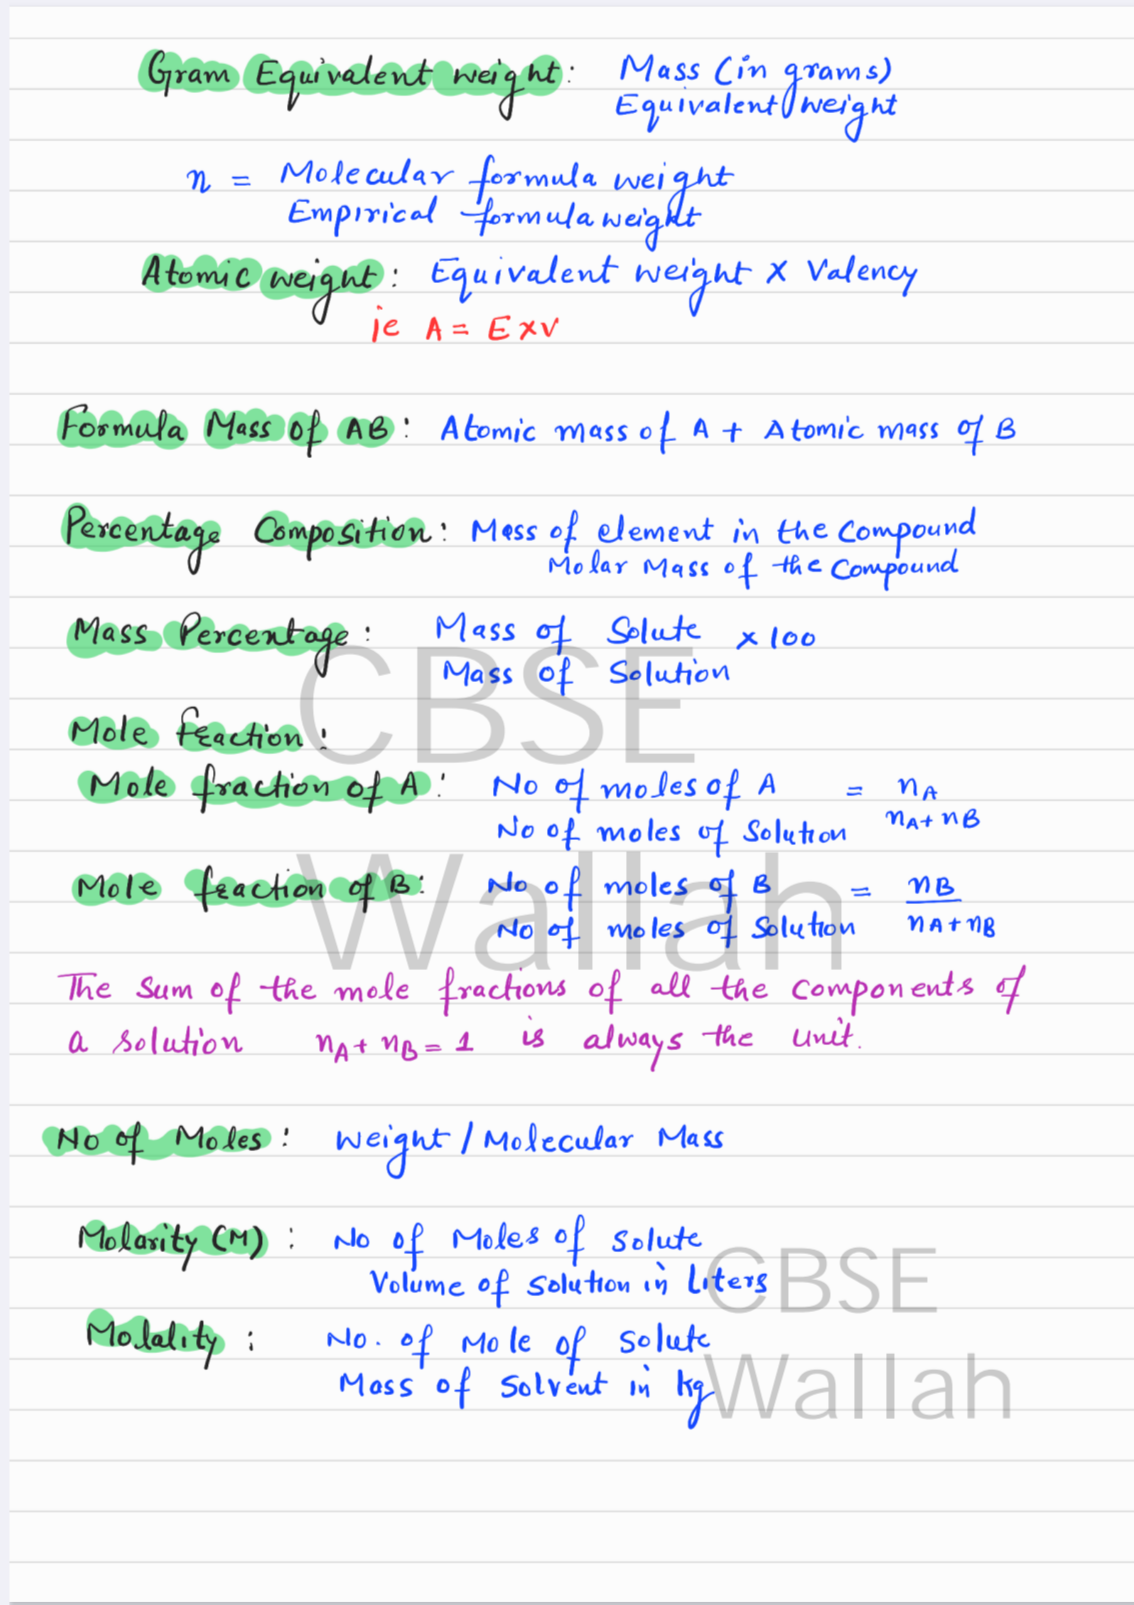 Gram Equivalent weight: Mass (in grams)
Equivalent weight
n = Molecular formula weight
Empirical formula weight
Atomic weight: Equivalent weight x Valency
ie A = E x V
Formula Mass of AB: Atomic mass of A + Atomic mass of B
Percentage Composition: Mass of element in the Compound
Molar Mass of the Compound
Mass Percentage: Mass of Solute x 100
Mass of Solution
CBSE
Mole fraction:
Mole fraction of A: No of moles of A = nA
No of moles of Solution nA + nB
Wallah
Mole fraction of B: No of moles of B = nB
No of moles of Solution nA + nB
The Sum of the mole fractions of all the components of
a solution nA + nB = 1 is always the unit.
No of Moles: Weight / Molecular Mass
Molarity (M): No of Moles of Solute
Volume of Solution in Liters
CBSE
Molality: No. of Mole of Solute
Mass of Solvent in kg
Wallah